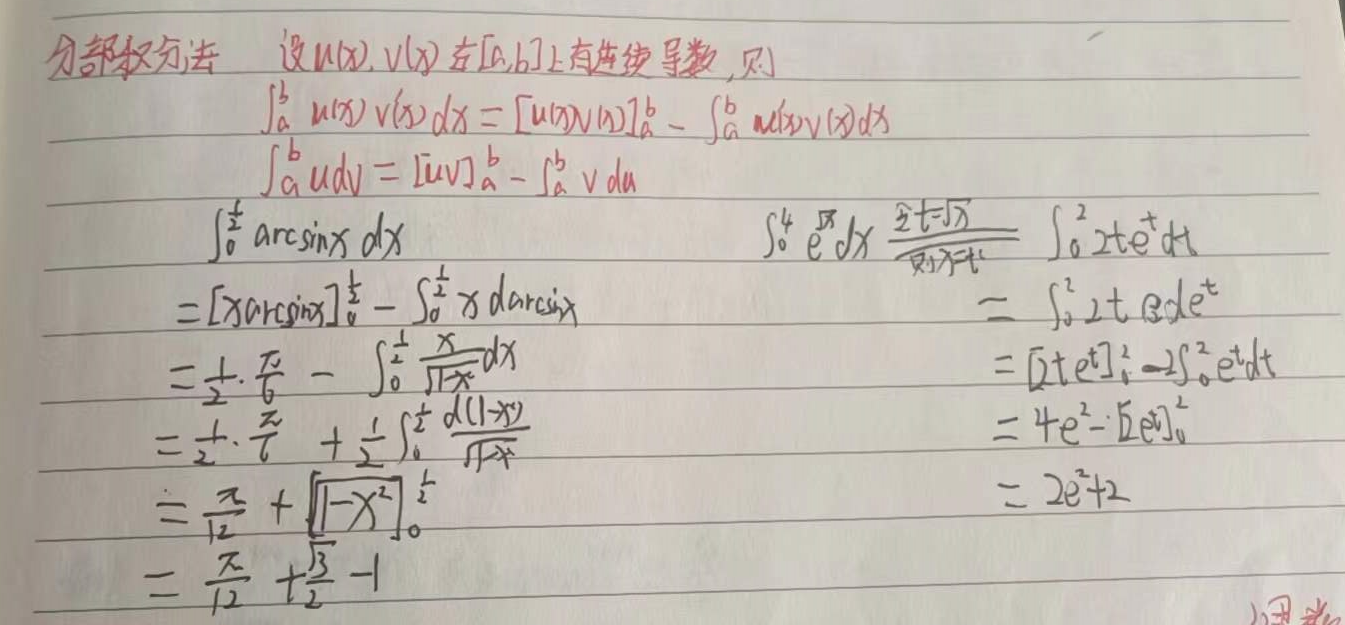 分部积分法 设u(x),v(x)在[a,b]上有连续导数,则
∫ₐᵇ u(x)v'(x)dx = [u(x)v(x)]ₐᵇ - ∫ₐᵇ u'(x)v(x)dx
∫ₐᵇ udv = [uv]ₐᵇ - ∫ₐᵇ vdu
∫₀^{1/2} arcsinx dx
= [xarcsinx]₀^{1/2} - ∫₀^{1/2} x darcsinx
= 1/2 · π/6 - ∫₀^{1/2} x/√(1-x²) dx
= 1/2 · π/6 + 1/2 ∫₀^{1/2} d(1-x²)/√(1-x²)
= π/12 + [√(1-x²)]₀^{1/2}
= π/12 + √3/2 - 1
∫₀⁴ e^{√x} dx 令t=√x 则x=t² ∫₀² 2te^t dt
= ∫₀² 2t de^t
= [2te^t]₀² - 2∫₀² e^t dt
= 4e² - [2e^t]₀²
= 2e²+2